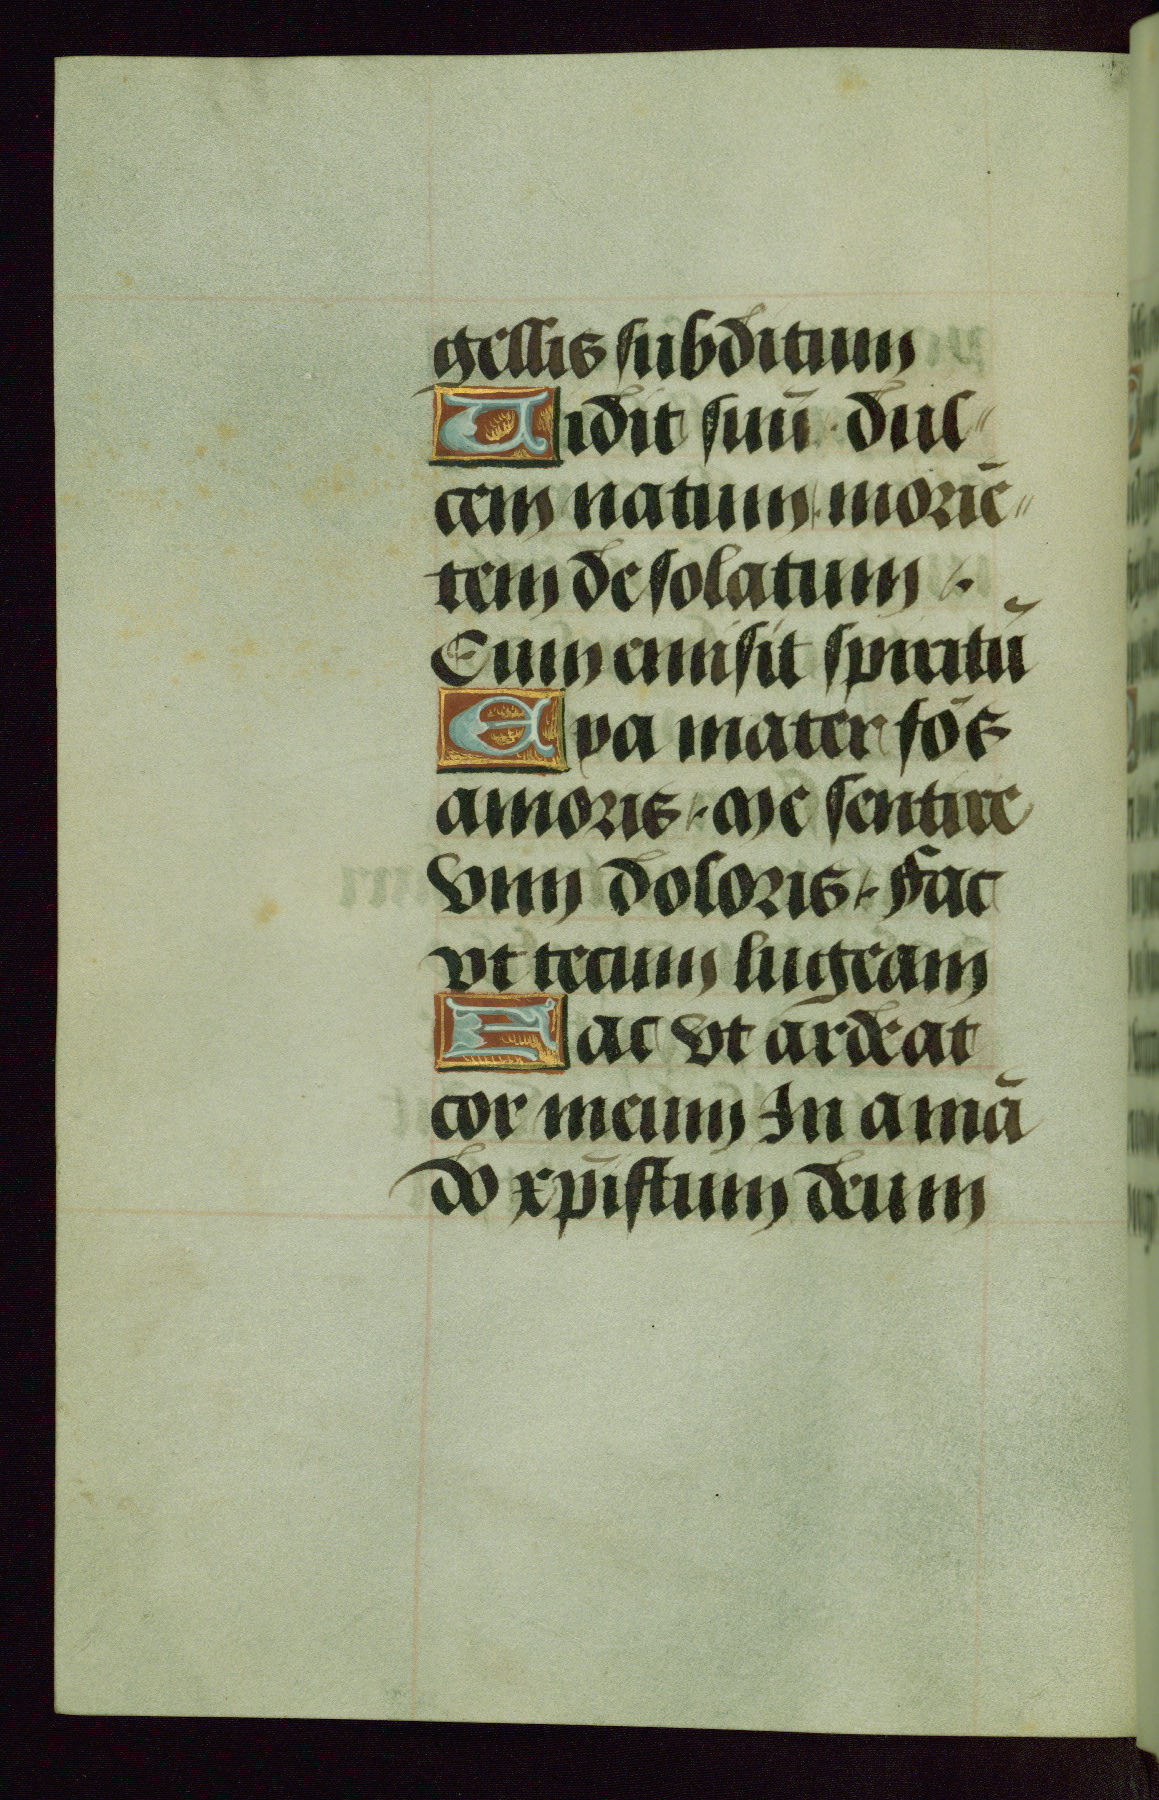 gellis subditum
Uidit suū dul"
cem natum / moriē"
tem desolatum /.
Eum emisit spiritū
Eya mater fōs
amoris /. Me sentire
vim doloris /. Fac
vt tecum lugeam
Fac vt ardeat
cor meum In amā
do xp̄istum deum